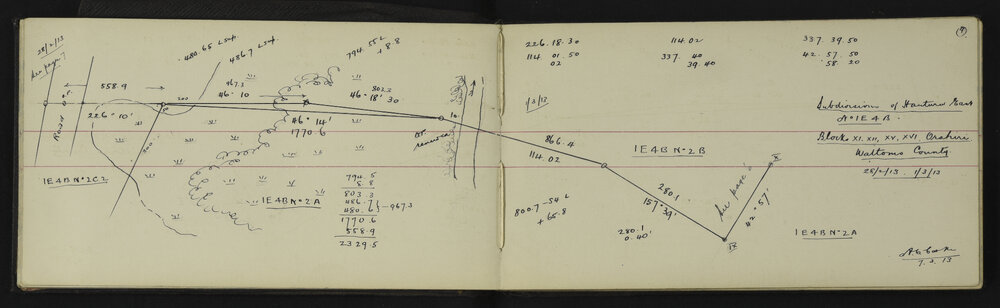 28/2/13
See page 7
558.9
Road
226° 10'
200
200
480.65 L Sup.
486.7 L Sup.
794.55 L
+ 8.8
967.3
46 - 10
803.3
46 - 18' 30
46° 14'
1770.6
1E4B No 2C2
1E4B No 2A
794.5
8.8
803.3
486.7
480.6
967.3
1770.6
558.9
2329.5
226. 18. 30
114 01. 50
02
114.02
337. 40
39. 40
337. 39. 50
42. 57. 50
58 20
7
1/3/13
Subdivision of Hauturu East
No 1E4B.
Blocks XI, XII, XV, XVI, Orahiri
Waitomo County
28/2/13. 1/3/13
866.4
114.02
1E4B No 2B
280.1
157° 39'
See page 6
X
42° 57'
IX
800.7 - 54 L
+ 65.8
280.1
0.40'
1E4B No 2A
7.3.13